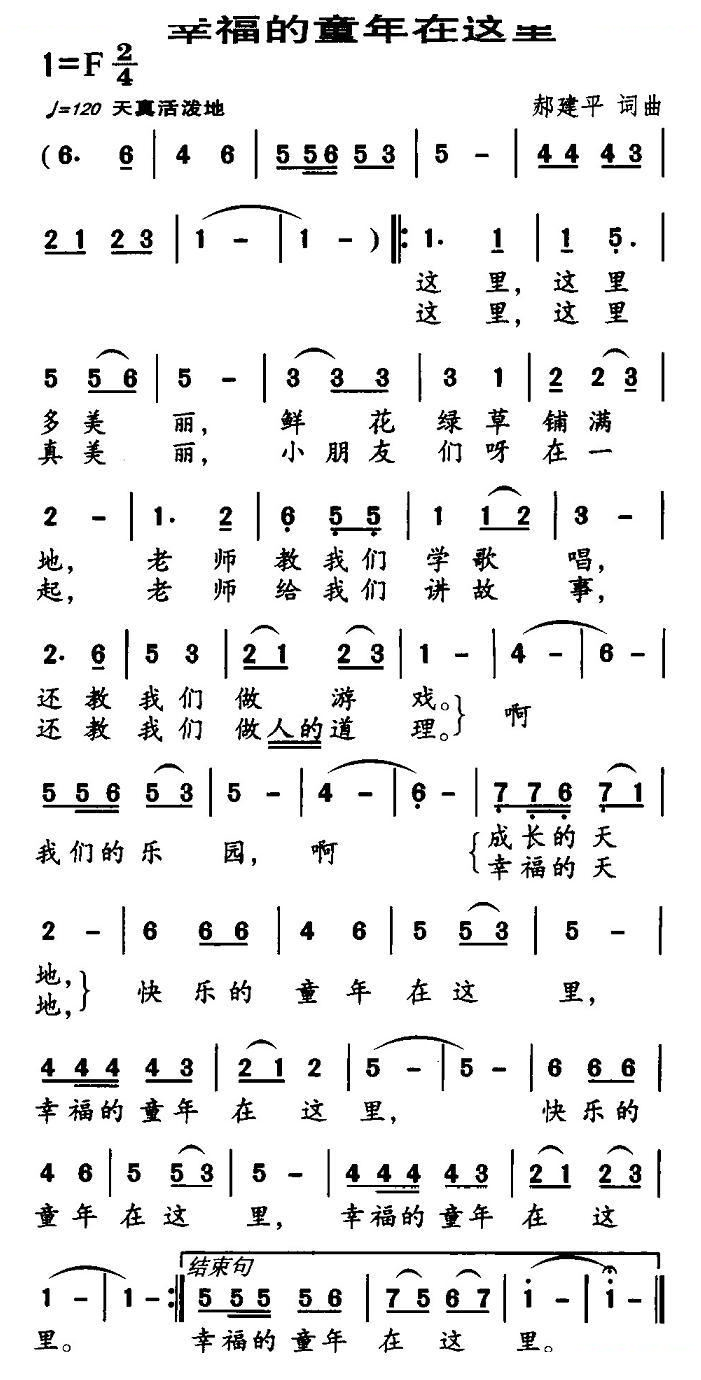 幸福的童年在这里
1=F 2/4
♩=120 天真活泼地 郝建平 词曲
(6. 6 | 4 6 | 5 56 5 3 | 5 - | 4 4 4 3 |
2 1 2 3 | 1 - | 1 - ) ‖: 1. 1 | 1 5. |
这 里, 这 里
这 里, 这 里
5 5 6 | 5 - | 3 3 3 | 3 1 | 2 2 3 |
多 美 丽, 鲜 花 绿 草 铺 满
真 美 丽, 小 朋 友 们 呀 在 一
2 - | 1. 2 | 6 5 5 | 1 1 2 | 3 - |
地, 老 师 教 我 们 学 歌 唱,
起, 老 师 给 我 们 讲 故 事,
2. 6 | 5 3 | 2 1 2 3 | 1 - | 4 - | 6 - |
还 教 我 们 做 游 戏。 啊
还 教 我 们 做 人 的 道 理。
5 5 6 5 3 | 5 - | 4 - | 6 - | 7 7 6 7 1 |
我 们 的 乐 园, 啊 成 长 的 天
幸 福 的 天
2 - | 6 6 6 | 4 6 | 5 5 3 | 5 - |
地, 快 乐 的 童 年 在 这 里,
地,
4 4 4 4 3 | 2 1 2 | 5 - | 5 - | 6 6 6 |
幸 福 的 童 年 在 这 里, 快 乐 的
4 6 | 5 5 3 | 5 - | 4 4 4 4 3 | 2 1 2 3 |
童 年 在 这 里, 幸 福 的 童 年 在 这
结束句
1 - | 1 - :‖ 5 5 5 5 6 | 7 5 6 7 | i - | i - ‖
里。 幸 福 的 童 年 在 这 里。